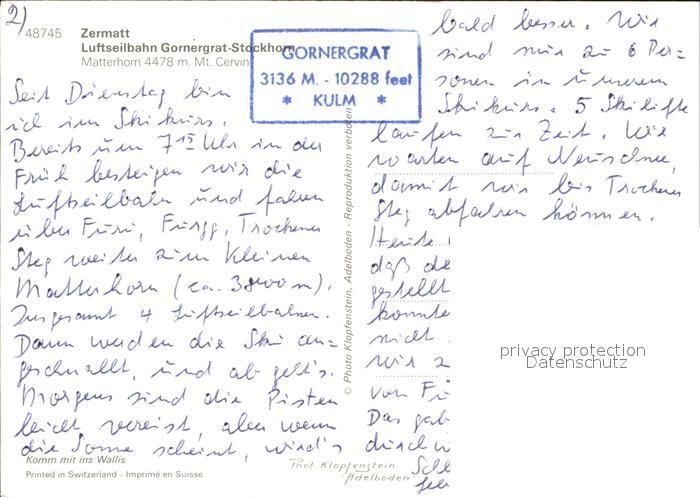 2)
48745 Zermatt
Luftseilbahn Gornergrat-Stockhorn
Matterhorn 4478 m. Mt. Cervin
GORNERGRAT
3136 M. - 10288 feet
* KULM *
Seit Dienstag bin
ich im Skikurs.
Bereits um 7 15 Uhr in der
Früh besteigen wir die
Luftseilbahn und fahren
über Furi, Furgg, Trockener
Steg weiter zum Kleinen
Matterhorn (ca. 3800 m).
Insgesamt 4 Luftseilbahnen.
Dann werden die Ski an=
geschnallt, und ab geht's.
Morgens sind die Pisten
leicht vereist, aber wenn
die Sonne scheint, wird's
bald besser. Wir
sind nur zu 6 Per=
sonen in unserem
Skikurs. 5 Skilifte
laufen zur Zeit. Wir
warten auf Neuschnee,
damit wir bis Trockener
Steg abfahren können.
Heute
daß de
gestellt
konnte
nicht
wir 2
von Fu
Das gab
durch w
Schl
Komm mit ins Wallis
Printed in Switzerland - Imprimé en Suisse
© Photo Klopfenstein, Adelboden - Reproduktion verboten
Phot Klopfenstein
"Adelboden"
privacy protection
Datenschutz